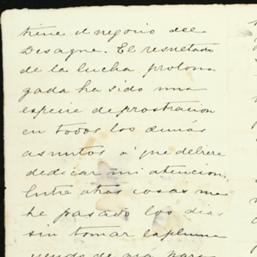 tiene el negocio del
Desagüe. El resultado
de la lucha prolon
gada ha sido una
especie de prostracion
en todos los demás
asuntos á que debiera
dedicar mi atencion.
Entre otras cosas me
he pasado los dias
sin tomar la pluma